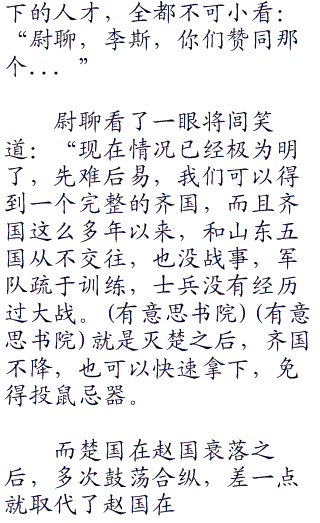 下的人才，全都不可小看：
“尉聊，李斯，你们赞同那
个...”
尉聊看了一眼将闾笑
道：“现在情况已经极为明
了，先难后易，我们可以得
到一个完整的齐国，而且齐
国这么多年以来，和山东五
国从不交往，也没战事，军
队疏于训练，士兵没有经历
过大战。(有意思书院)(有意
思书院)就是灭楚之后，齐国
不降，也可以快速拿下，免
得投鼠忌器。
而楚国在赵国衰落之
后，多次鼓荡合纵，差一点
就取代了赵国在